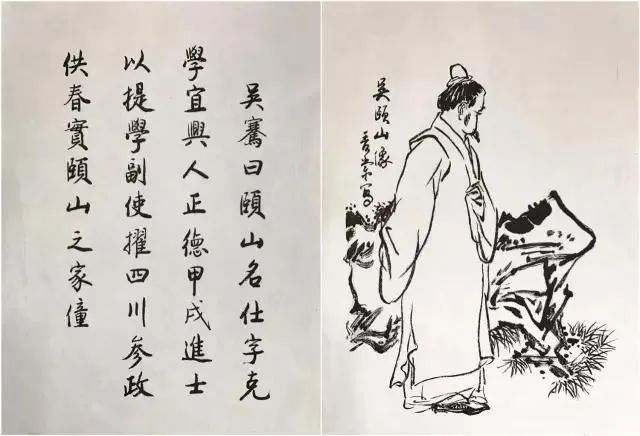 吳騫曰頤山名仕字克
學宜興人正德甲戌進士
以提學副使擢四川參政
供春實頤山之家僮
吳頤山像